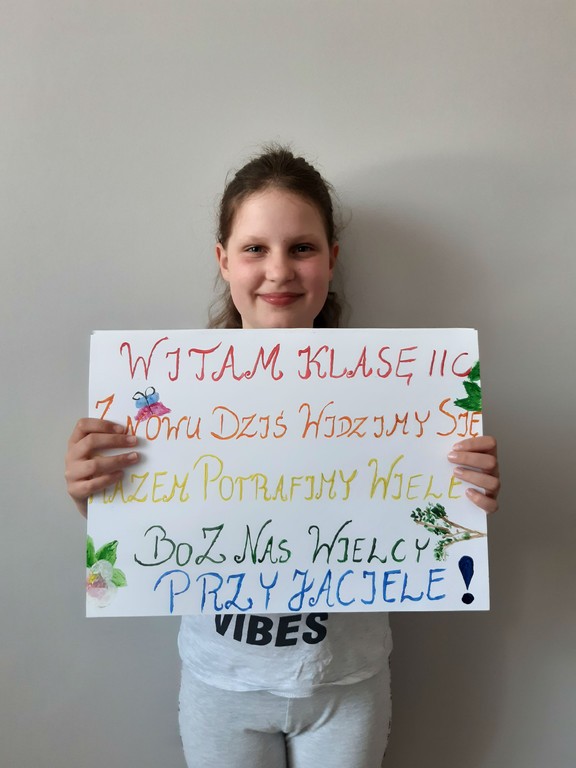 WITAM KLASĘ IIC
ZNOWU DZIŚ WIDZIMY SIĘ
RAZEM POTRAFIMY WIELE
BO Z NAS WIELCY
PRZYJACIELE!
VIBES